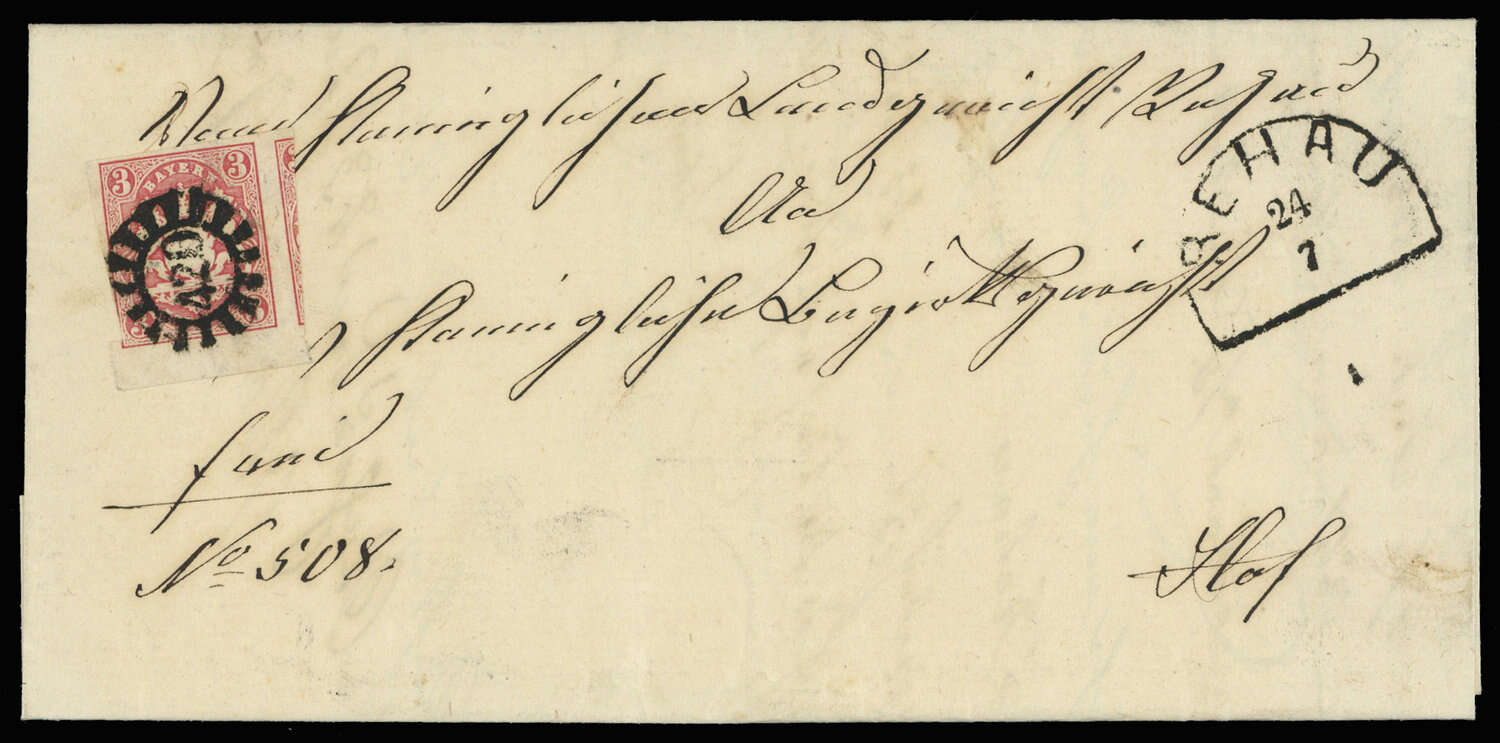 Vom Königlichen Landgericht Rehau
An
Königliches Bezirksgericht
frei
No 508.
Hof
3 BAYERN 3
420
REHAU
24
7